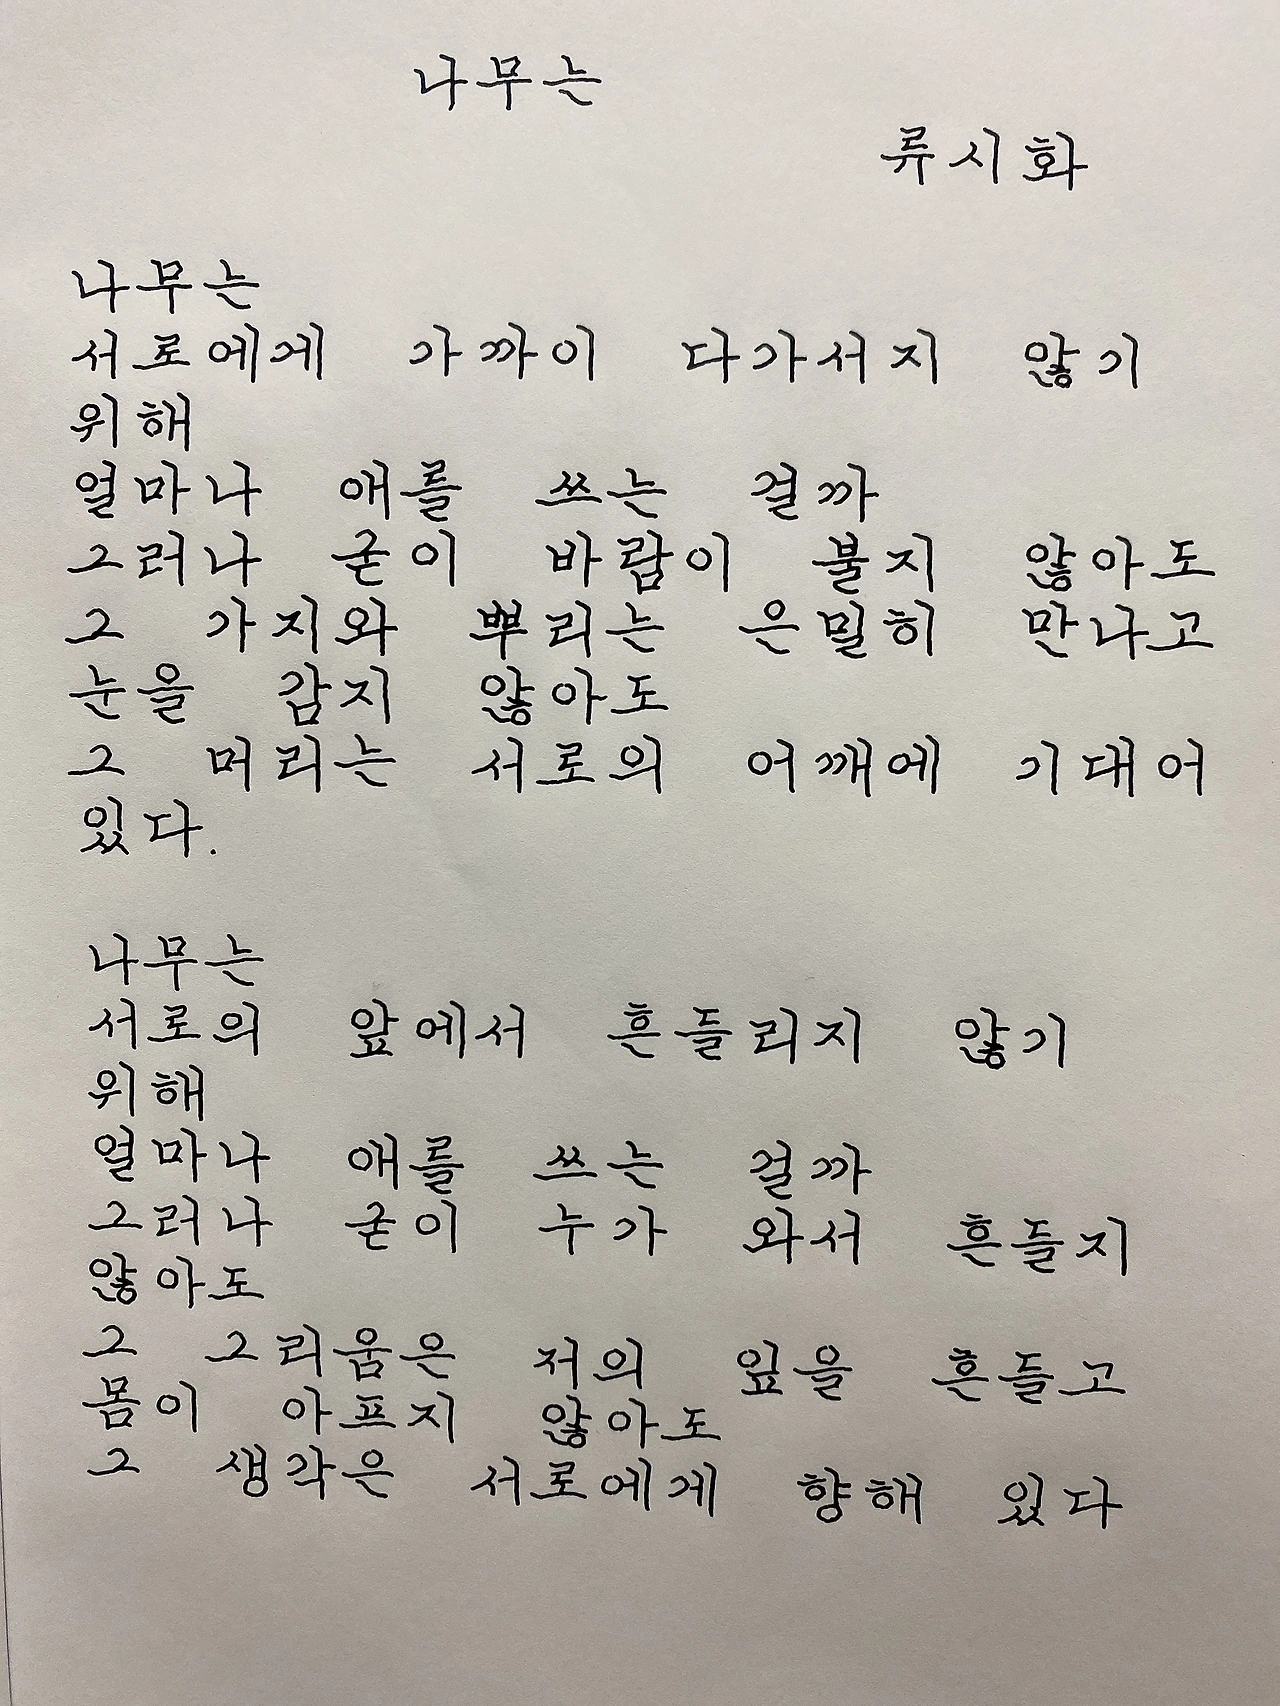 나무는
류시화
나무는
서로에게 가까이 다가서지 않기
위해
얼마나 애를 쓰는 걸까
그러나 굳이 바람이 불지 않아도
그 가지와 뿌리는 은밀히 만나고
눈을 감지 않아도
그 머리는 서로의 어깨에 기대어
있다.
나무는
서로의 앞에서 흔들리지 않기
위해
얼마나 애를 쓰는 걸까
그러나 굳이 누가 와서 흔들지
않아도
그 그리움은 저의 잎을 흔들고
몸이 아프지 않아도
그 생각은 서로에게 향해 있다